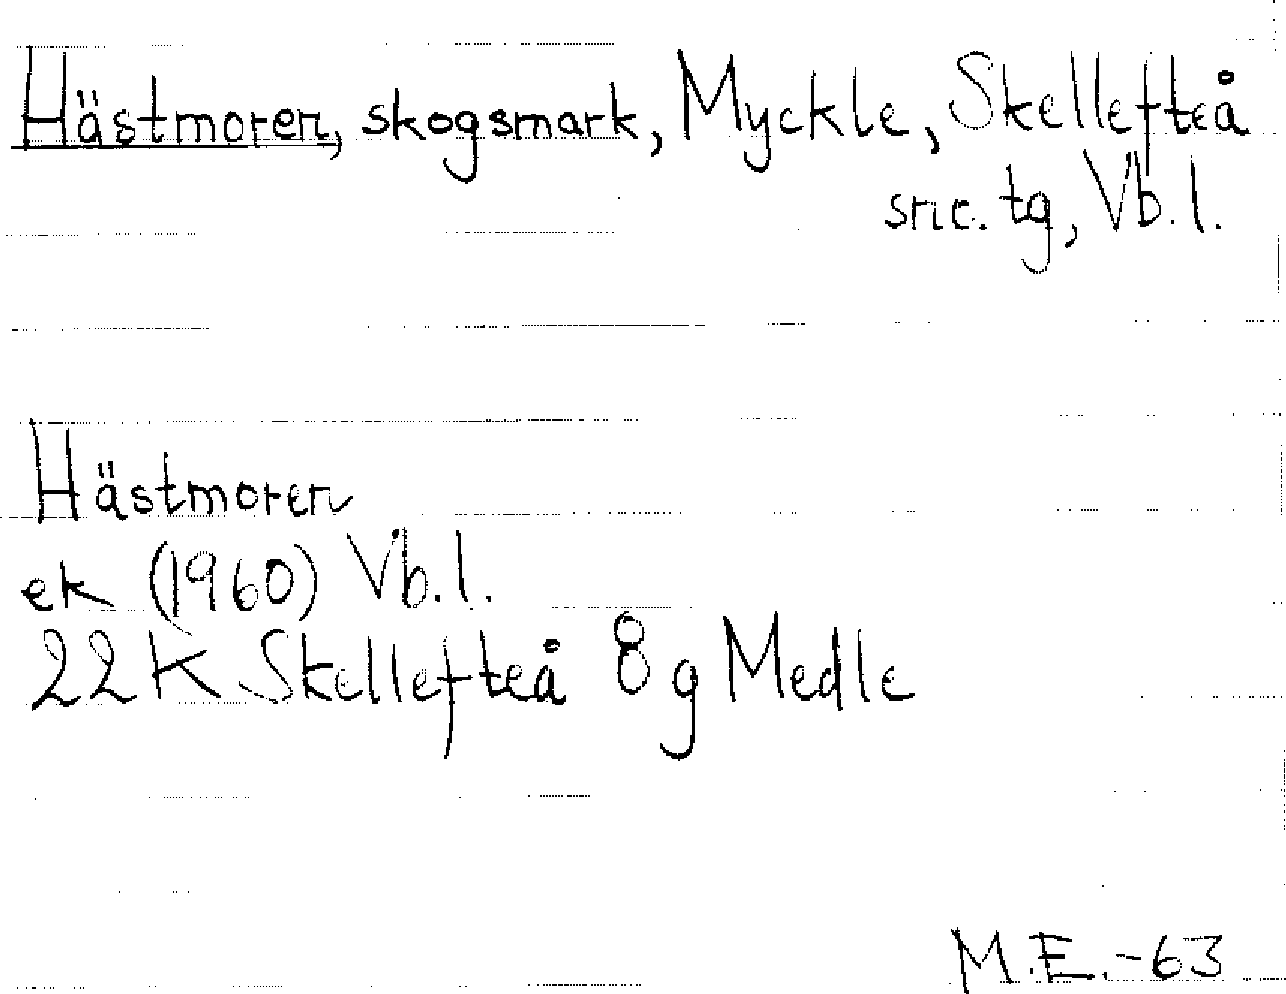 Hästmoren, skogsmark, Myckle, Skellefteå
snc. tg, Vb. l.
Hästmoren
ek (1960) Vb. l.
22 K Skellefteå 8 g Medle
M.E.-63